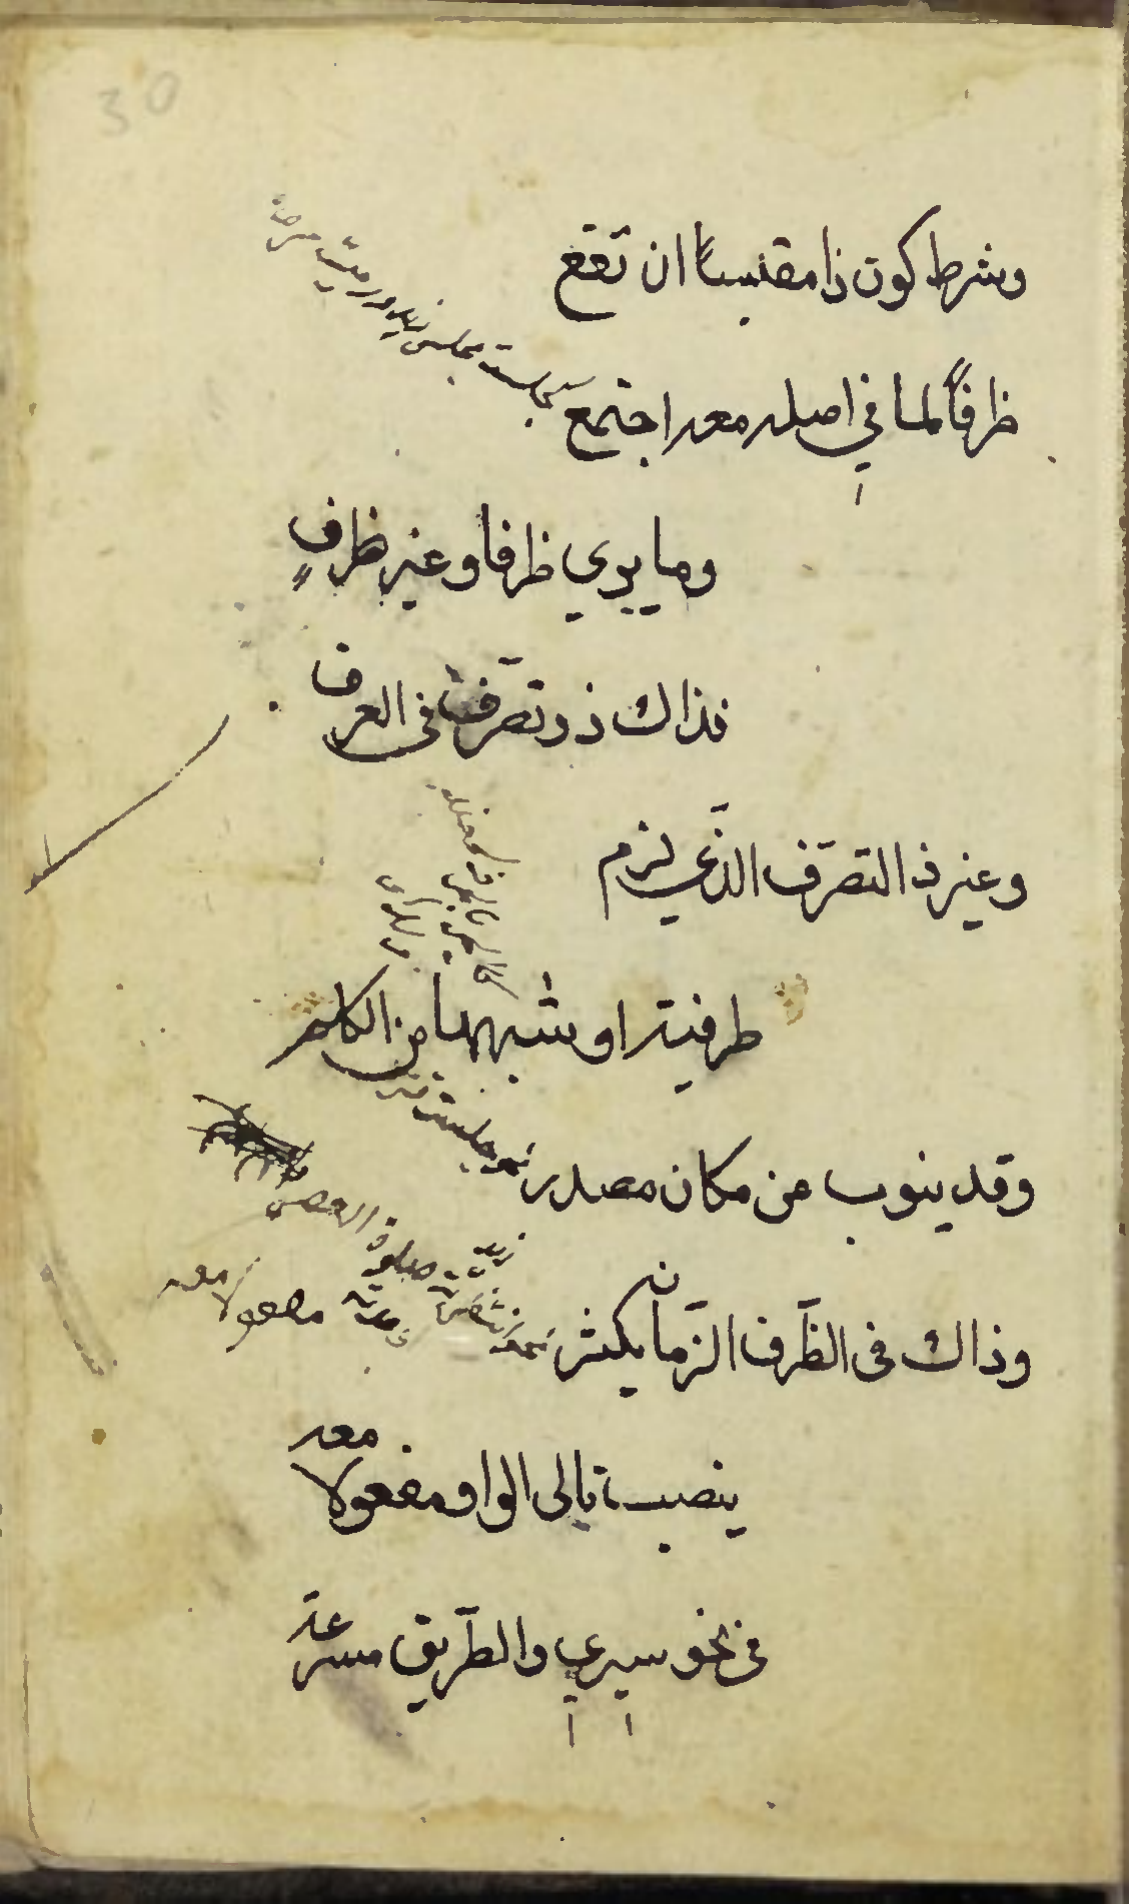 30
وشرط كون ذا مقيسًا ان تقع
ظرفًا لما في اصله معه اجتمع
وما يري ظرفا وغير ظرفٍ
فذاك ذو تصرّف فى العرف
وغير ذ التصرّف الذّي لزم
ظرفية او شبهها من الكلم
وقد ينوب عن مكان مصدر
نحو جلست
وذاك فى الظّرف الزّمان يكثر
صلوة العصر
مفعولا معه
ينصب تالى الواو مفعولا معه
فى نحو سيري والطّريق مسرعة